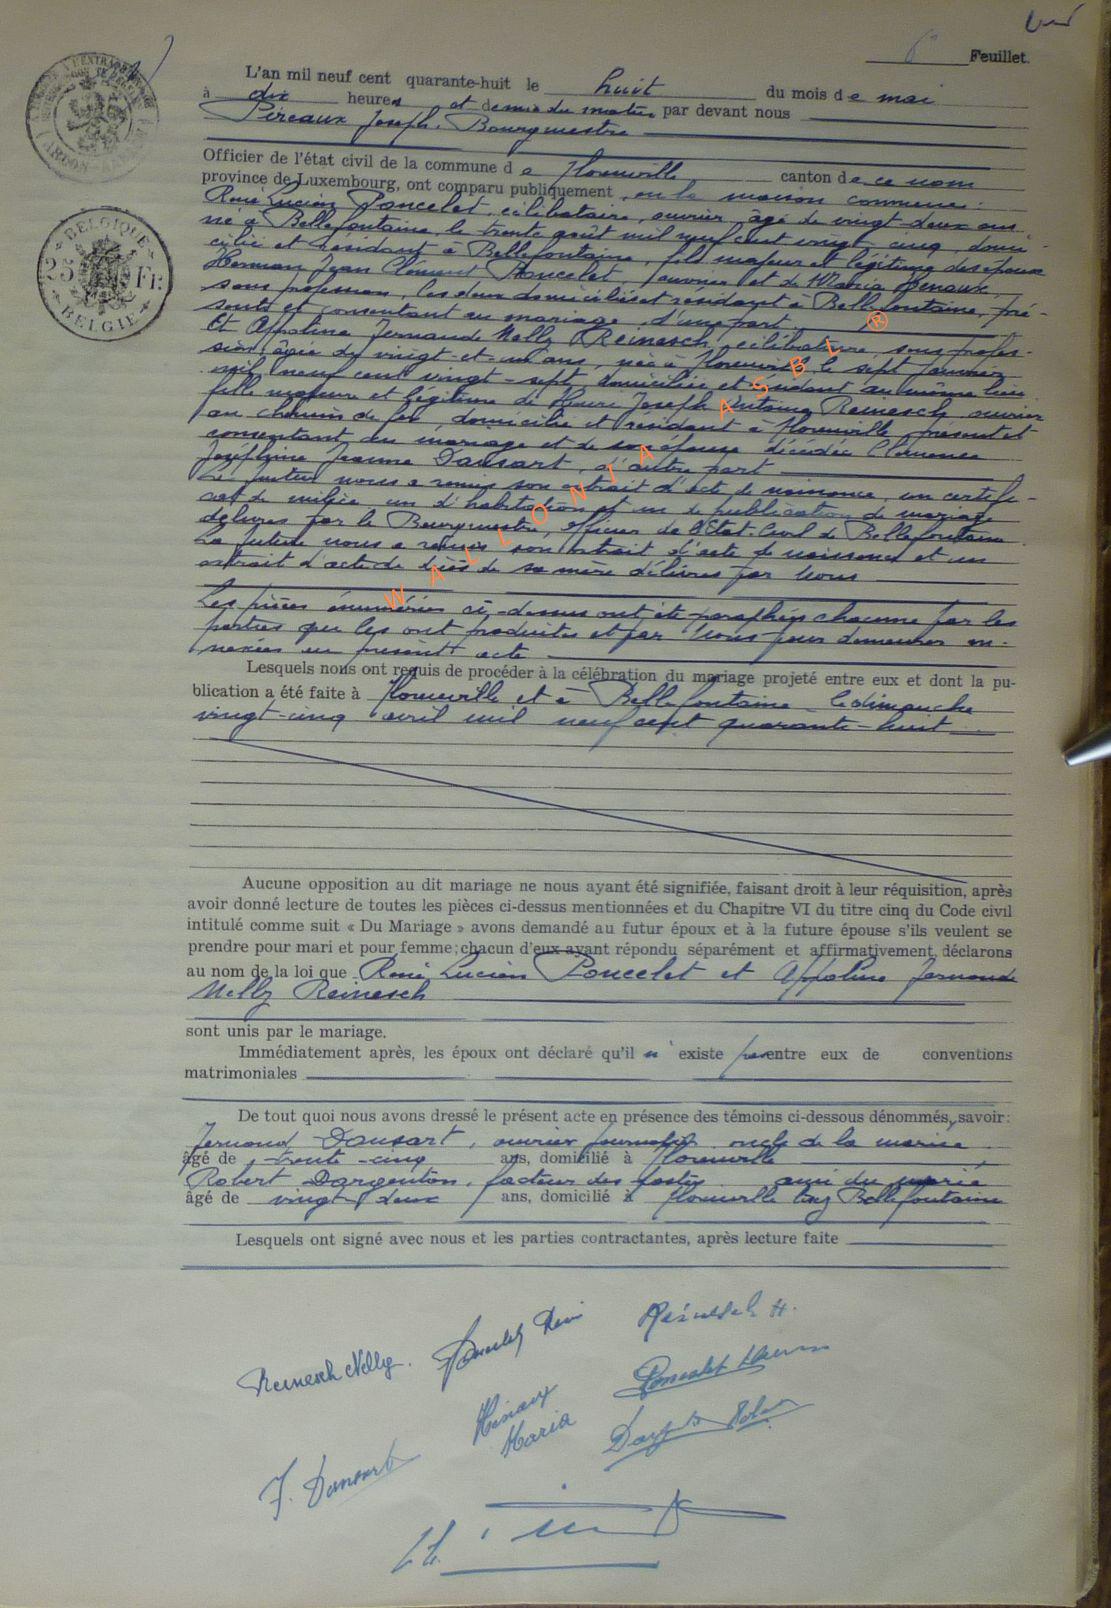 6e Feuillet.
L'an mil neuf cent quarante-huit le huit du mois de mai
à dix heures et demie du matin par devant nous
Pireaux Joseph, Bourgmestre
Officier de l'état civil de la commune de Florenville canton de ce nom
province de Luxembourg, ont comparu publiquement en la maison commune :
René Lucien Poncelet, célibataire, ouvrier, âgé de vingt deux ans
né à Bellefontaine le trente août mil neuf cent vingt cinq domi-
cilié et résidant à Bellefontaine, fils majeur et légitime des époux
Herman Jean Clément Poncelet, ouvrier et de Maria Henaux,
sans profession, les deux domiciliés et résidant à Bellefontaine, pré-
sents et consentant au mariage, d'une part
Et Appoline Fernande Nelly Reinesch, célibataire, sans profes-
sion, âgée de vingt-et-un ans, née à Florenville le sept janvier
mil neuf cent vingt-sept, domiciliée et résidant au même lieu
fille majeure et légitime de Henri Joseph Antoine Reinesch, ouvrier
au chemin de fer, domicilié et résidant à Florenville, présent et
consentant au mariage et de son épouse décédée Clémence
Joséphine Jeanne Dansart, d'autre part
Le futur nous a remis son extrait d'acte de naissance, un certifi-
cat de milice, un d'habitation et un de publication de mariage
délivrés par le Bourgmestre, officier de l'Etat-Civil de Bellefontaine
La future nous a remis son extrait d'acte de naissance et un
extrait d'acte de décès de sa mère délivrés par nous
Les pièces énumérées ci-dessus ont été paraphées chacune par les
parties qui les ont produites et par nous pour demeurer an-
nexées au présent acte
Lesquels nous ont requis de procéder à la célébration du mariage projeté entre eux et dont la pu-
blication a été faite à Florenville et à Bellefontaine le dimanche
vingt-cinq avril mil neuf cent quarante-huit
Aucune opposition au dit mariage ne nous ayant été signifiée, faisant droit à leur réquisition, après
avoir donné lecture de toutes les pièces ci-dessus mentionnées et du Chapitre VI du titre cinq du Code civil
intitulé comme suit « Du Mariage » avons demandé au futur époux et à la future épouse s'ils veulent se
prendre pour mari et pour femme; chacun d'eux ayant répondu séparément et affirmativement, déclarons
au nom de la loi que René Lucien Poncelet et Appoline Fernande
Nelly Reinesch
sont unis par le mariage.
Immédiatement après, les époux ont déclaré qu'il n'existe pas entre eux de conventions
matrimoniales
De tout quoi nous avons dressé le présent acte en présence des témoins ci-dessous dénommés, savoir:
Fernand Dansart, ouvrier journalier oncle de la mariée
âgé de trente-cinq ans, domicilié à Florenville
Robert Dargenton, facteur des postes ami du marié
âgé de vingt deux ans, domicilié à Bellefontaine
Lesquels ont signé avec nous et les parties contractantes, après lecture faite
Reinesch Nelly. Poncelet René Reinesch H.
Henaux Maria Poncelet Herman
F. Dansart
BELGIQUE
25 Fr.
BELGIE
WALLONIA ASBL ®